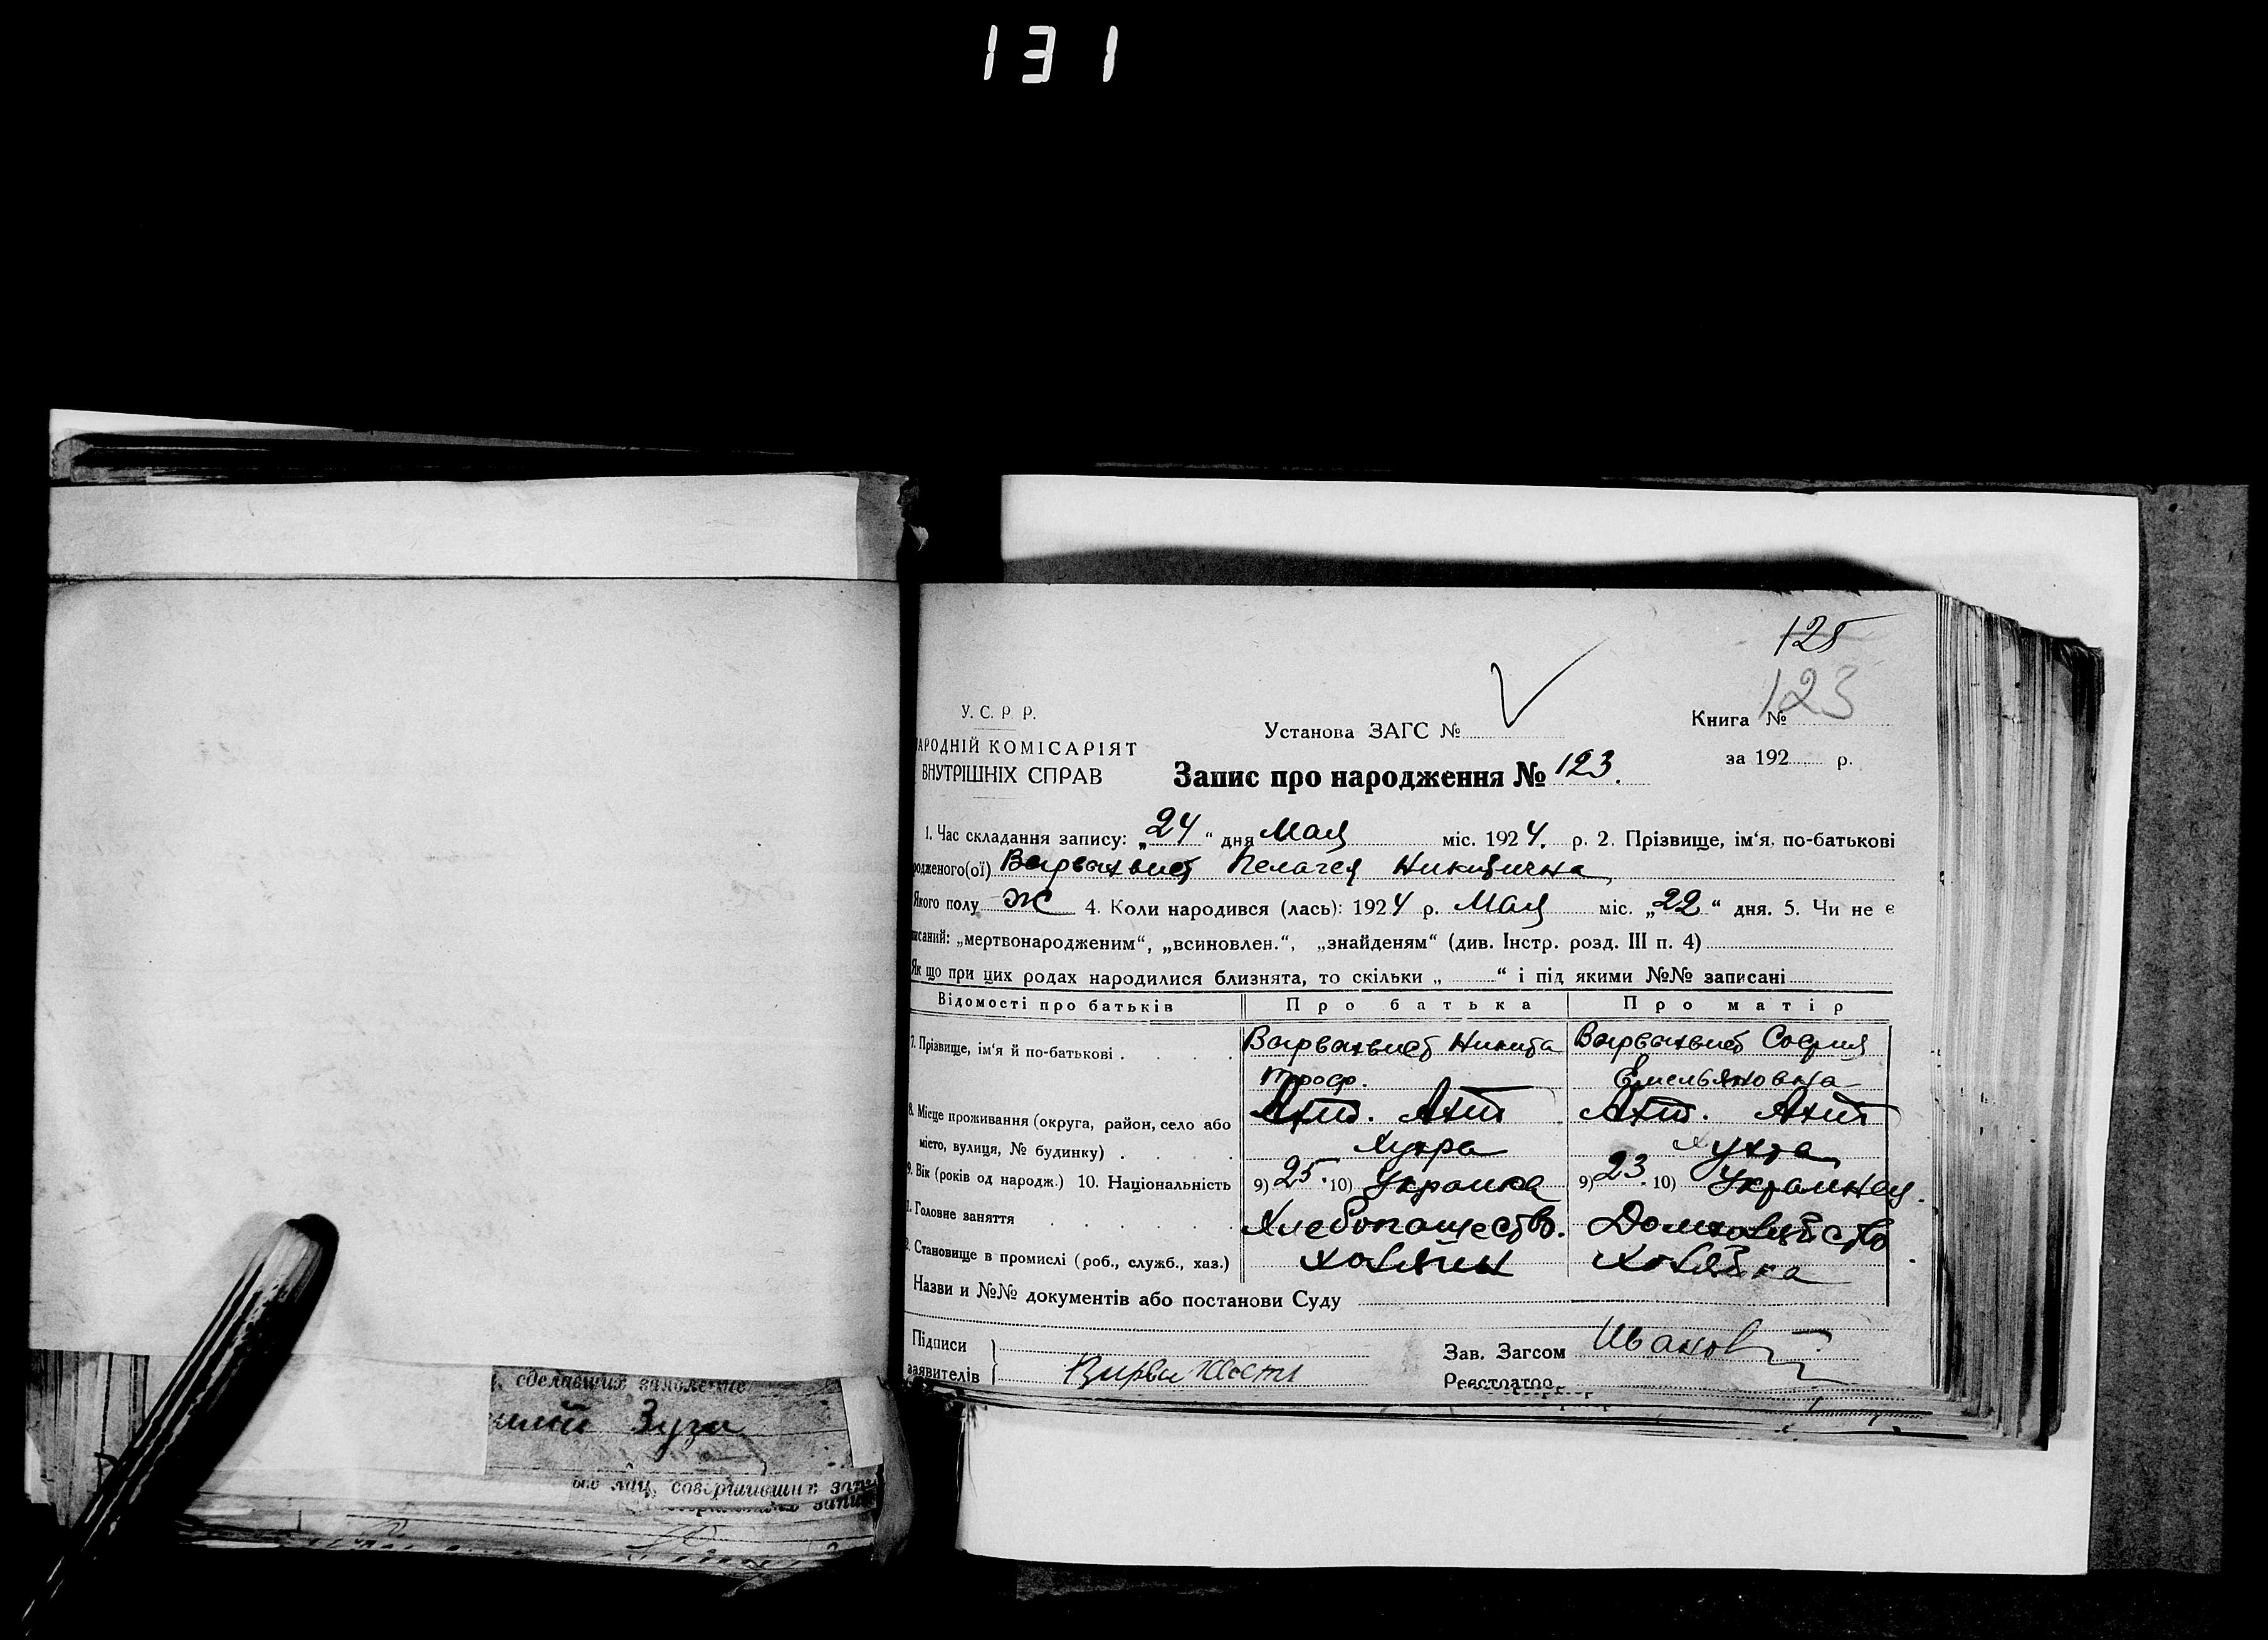 131
125
123
У. С. Р. Р.
Установа ЗАГС №
Книга №
АРОДНІЙ КОМІСАРІЯТ
ВНУТРІШНІХ СПРАВ
Запис про народження № 123.
за 192 р.
1. Час складання запису: „24“ дня Мая міс. 1924. р. 2. Прізвище, ім‘я, по-батькові
родженого(ої) Пелагея Никитична
Якого полу ж 4. Коли народився (лась): 1924 р. Мая міс. „22“ дня. 5. Чи не є
писаний: „мертвонародженим“, „всиновлен.“, „знайденям“ (див. Інстр. розд. III п. 4)
Як що при цих родах народилися близнята, то скільки „ “ і під якими №№ записані
Відомості про батьків Про батька Про матір
7. Прізвище, ім‘я й по-батькові Никита София
Троф. Емельяновна
8. Місце проживання (округа, район, село або Ахт. Ахт Ахт. Ахт
місто, вулиця, № будинку) Хухра Хухра
9. Вік (років од народж.) 10. Національність 9) 25. 10) 9) 23. 10)
1. Головне заняття Хлебопашество. Домхозяйство
2. Становище в промислі (роб., служб., хаз.) хозяин хозяйка
Назви и №№ документів або постанови Суду
Підписи
Зав. Загсом Иванов
заявителів
Реєстратор
сделавших заявление
Зуги
лиц, совершивших запи